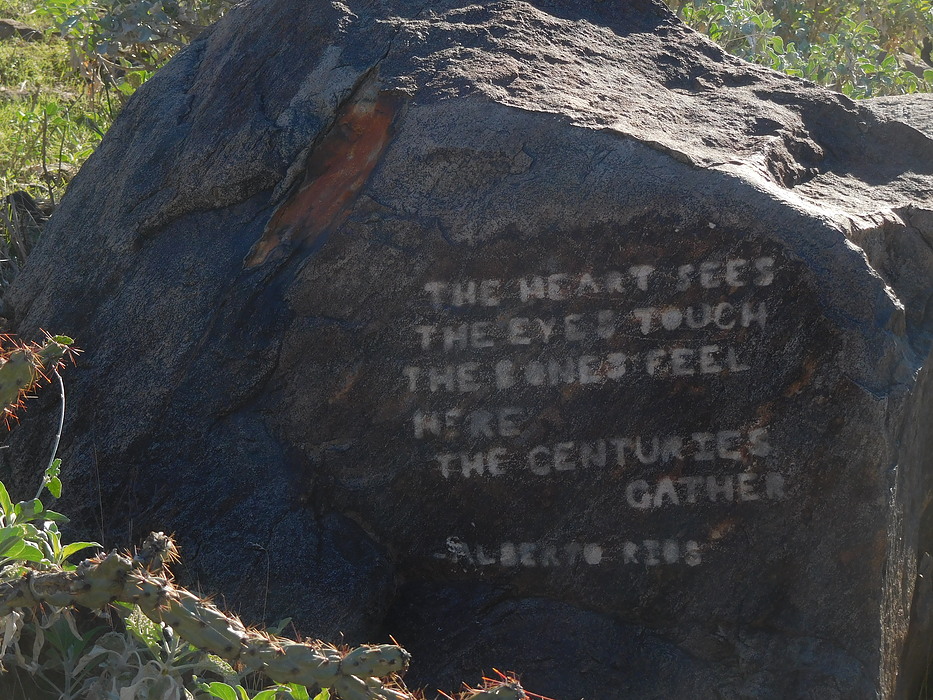 THE HEART SEES
THE EYES TOUCH
THE BONES FEEL
HERE
THE CENTURIES
GATHER
-ALBERTO RIOS